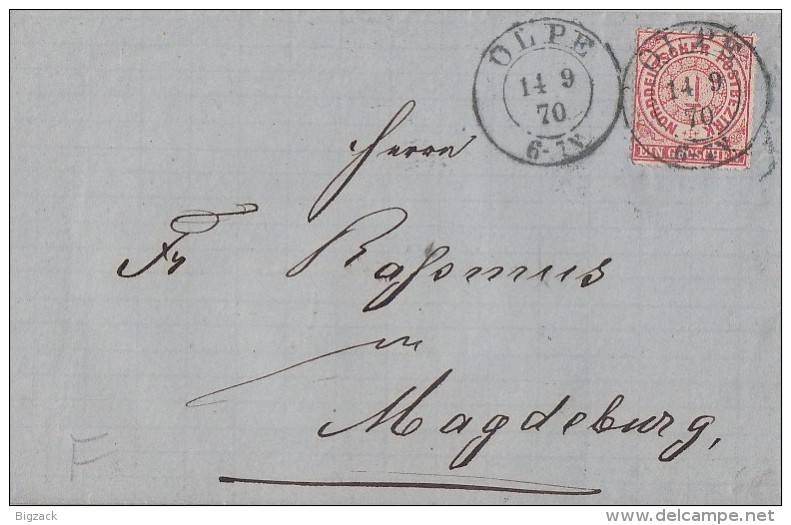 OLPE
14 9
70
6-7N.
OLPE
14 9
70
6-7N.
NORDDEUTSCHER POSTBEZIRK
1
EIN GROSCHEN
Herrn
Fr Raßmus
in
Magdeburg,
F
Bigzack
www.delcampe.net